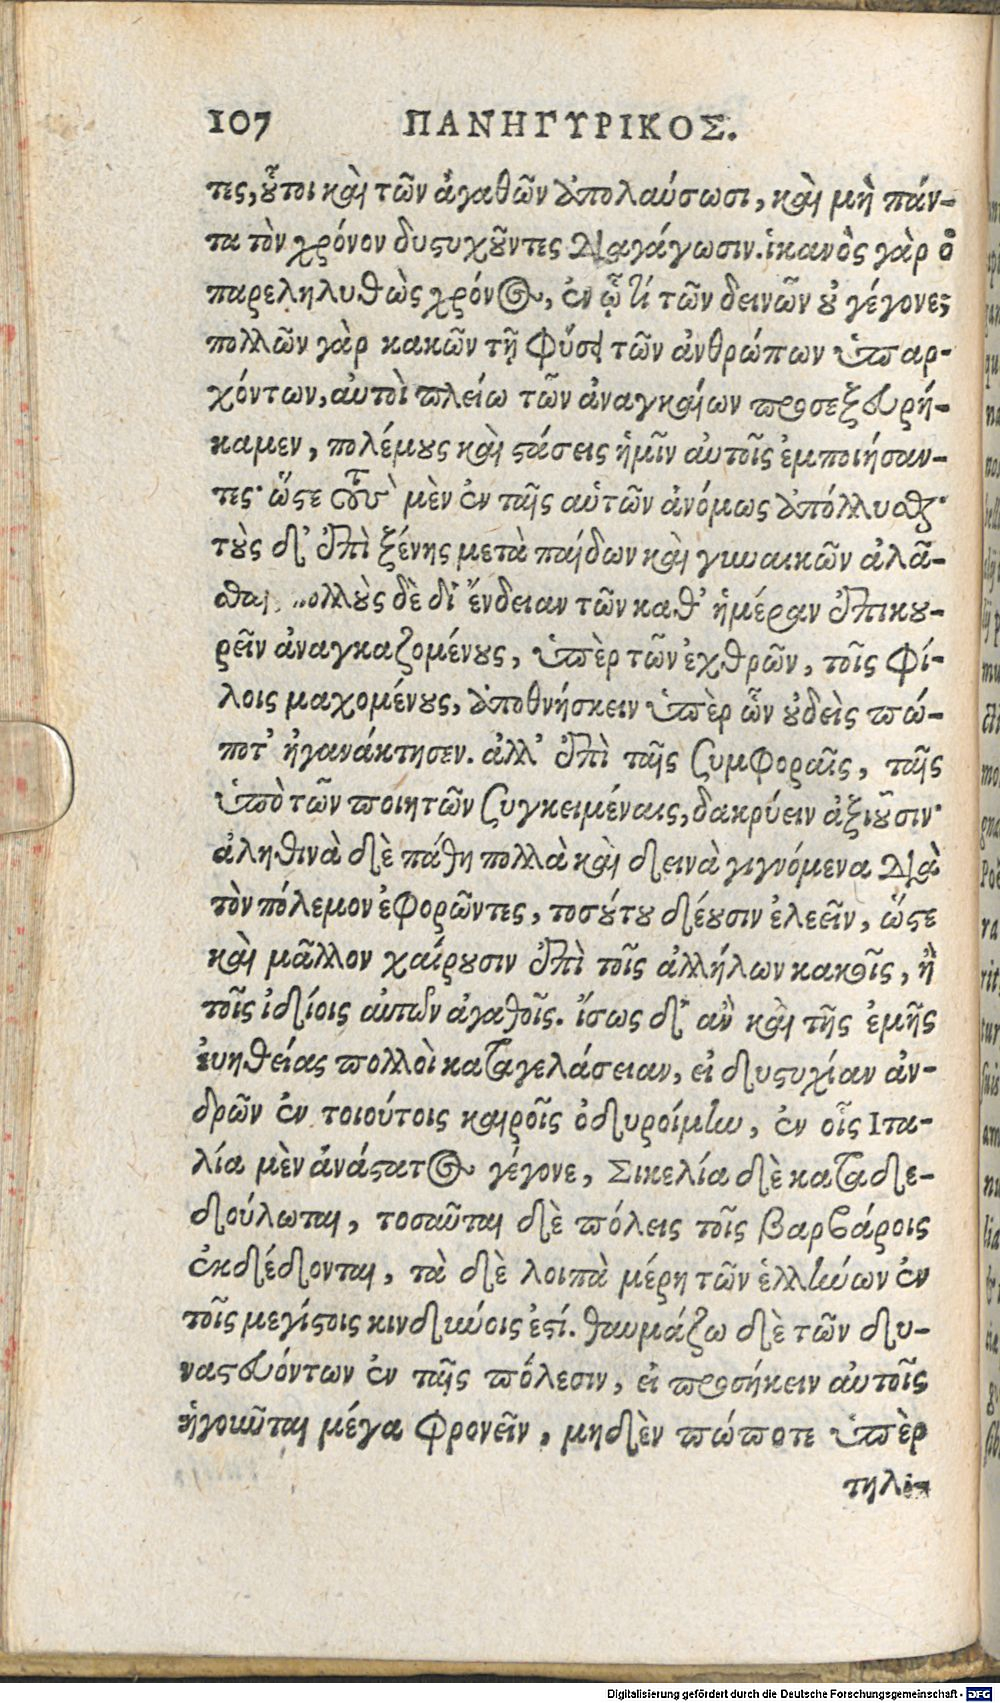 107 ΠΑΝΗΓΥΡΙΚΟΣ.
τες, οὗτοι καὶ τῶν ἀγαθῶν ἀπολαύσωσι, καὶ μὴ πάν-
τα τὸν χρόνον δυστυχοῦντες διαγάγωσιν. ἱκανὸς γὰρ ὁ
παρεληλυθὼς χρόνος, ἐν ᾧ τί τῶν δεινῶν οὐ γέγονε;
πολλῶν γὰρ κακῶν τῇ φύσει τῶν ἀνθρώπων ὑπαρ-
χόντων, αὐτοὶ πλείω τῶν ἀναγκαίων προσεξευρή-
καμεν, πολέμους καὶ στάσεις ἡμῖν αὐτοῖς ἐμποιήσαν-
τες· ὥστε τοὺς μὲν ἐν ταῖς αὑτῶν ἀνόμως ἀπόλλυσθαι·
τοὺς δ' ἐπὶ ξένης μετὰ παίδων καὶ γυναικῶν ἀλᾶ-
σθαι, πολλοὺς δὲ δι' ἔνδειαν τῶν καθ' ἡμέραν ἐπικου-
ρεῖν ἀναγκαζομένους, ὑπὲρ τῶν ἐχθρῶν, τοῖς φί-
λοις μαχομένους, ἀποθνήσκειν ὑπὲρ ὧν οὐδεὶς πώ-
ποτ' ἠγανάκτησεν. ἀλλ' ἐπὶ ταῖς συμφοραῖς, ταῖς
ὑπὸ τῶν ποιητῶν συγκειμέναις, δακρύειν ἀξιοῦσιν·
ἀληθινὰ δὲ πάθη πολλὰ καὶ δεινὰ γιγνόμενα διὰ
τὸν πόλεμον ἐφορῶντες, τοσούτου δέουσιν ἐλεεῖν, ὥστε
καὶ μᾶλλον χαίρουσιν ἐπὶ τοῖς ἀλλήλων κακοῖς, ἢ
τοῖς ἰδίοις αὐτῶν ἀγαθοῖς. ἴσως δ' ἂν καὶ τῆς ἐμῆς
εὐηθείας πολλοὶ καταγελάσειαν, εἰ δυστυχίαν ἀν-
δρῶν ἐν τοιούτοις καιροῖς ὀδυροίμην, ἐν οἷς Ιτα-
λία μὲν ἀνάστατος γέγονε, Σικελία δὲ καταδε-
δούλωται, τοσαῦται δὲ πόλεις τοῖς βαρβάροις
ἐκδέδονται, τὰ δὲ λοιπὰ μέρη τῶν ἑλλήνων ἐν
τοῖς μεγίστοις κινδύνοις ἐστί. θαυμάζω δὲ τῶν δυ-
ναστευόντων ἐν ταῖς πόλεσιν, εἰ προσήκειν αὐτοῖς
ἡγοῦνται μέγα φρονεῖν, μηδὲν πώποτε ὑπὲρ
τηλι-
Digitalisierung gefördert durch die Deutsche Forschungsgemeinschaft - DFG